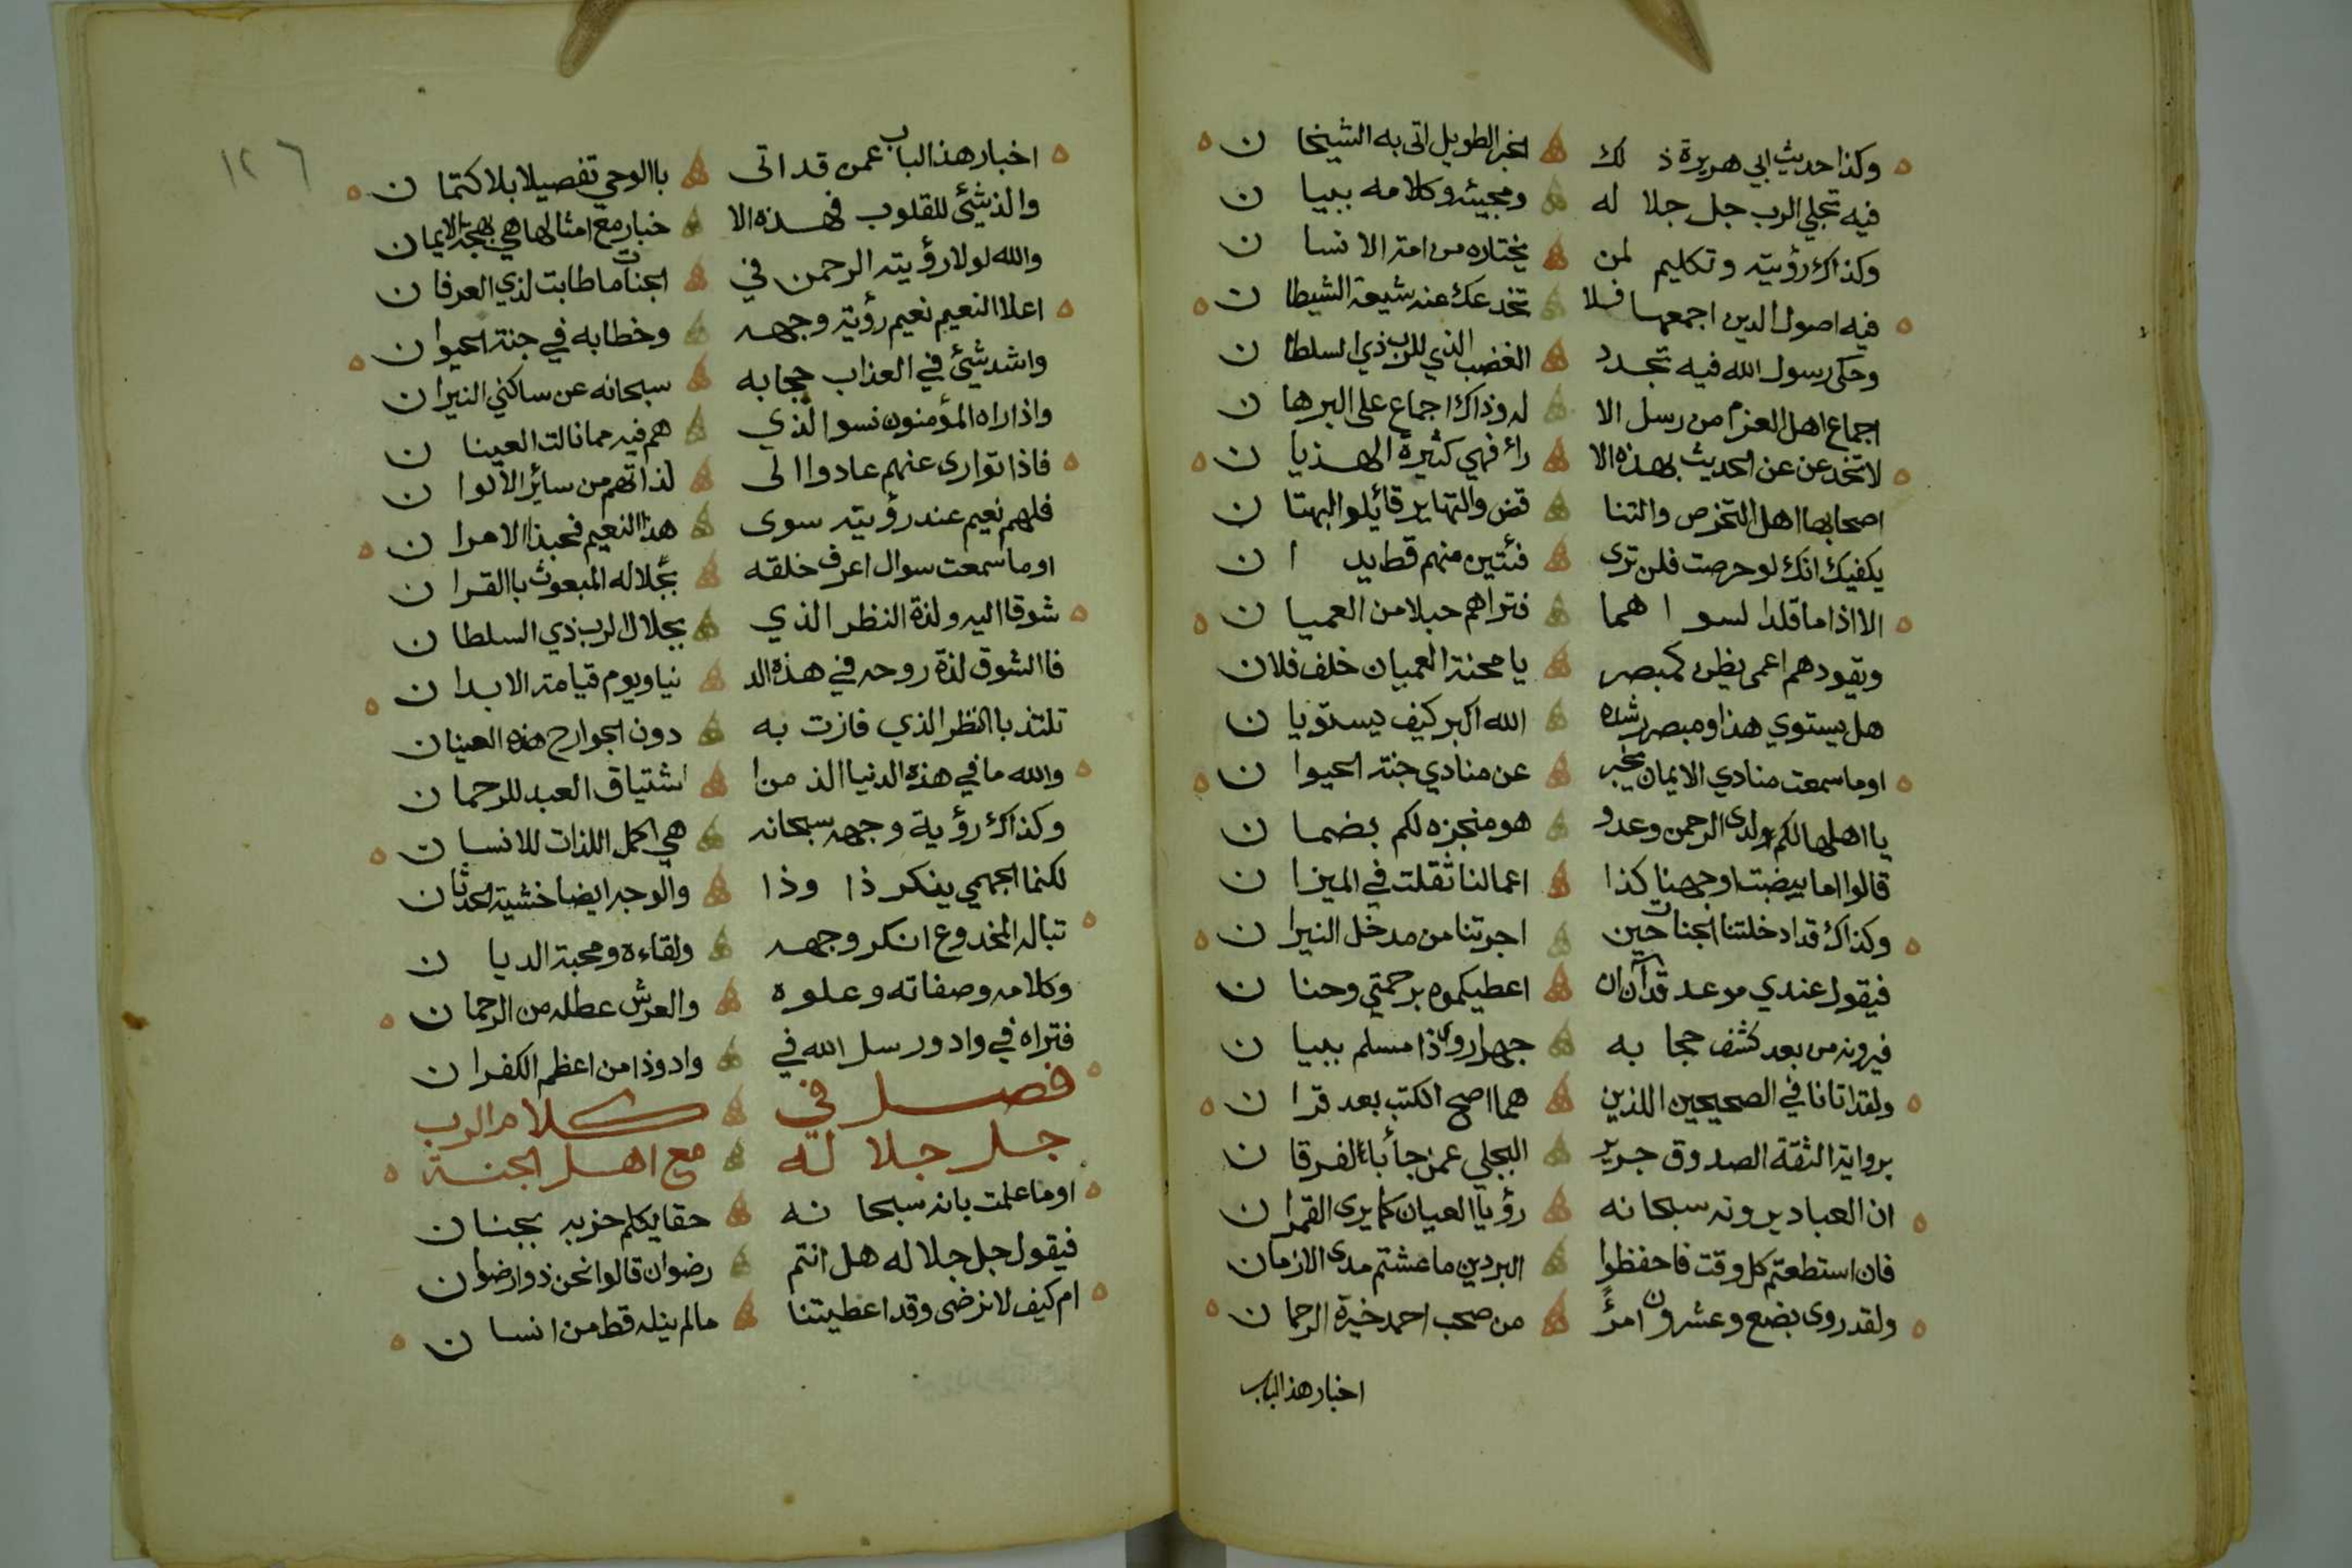 وكذا حديث ابي هريرة ذ لك الخبر الطويل اتى به الشيخا ن
فيه تجلي الرب جل جلا له ومجيئه وكلامه ببيا ن
وكذاك رؤيته وتكليم لمن يختاره من امة الانسا ن
فيه اصول الدين اجمعها فلا تخدعك عنه شيعة الشيطا ن
وحكى رسول الله فيه تجدد الغضب الذي للرب ذي السلطا ن
اجماع اهل العزم من رسل الا له وذاك اجماع على البرها ن
لا تخدعن عن الحديث بهذه الا راء فهي كثيرة الهذيا ن
اصحابها اهل التخرص والتنا قض والتهاير قائلو البهتا ن
يكفيك انك لو حرصت فلن ترى فئتين منهم قط يد ا ن
الا اذا ما قلدا لسوا هما فتراهم حبلا من العميا ن
ويقودهم اعمى يظن كمبصر يا محنة العميان خلف فلان
هل يستوي هذا ومبصر رشده الله اكبر كيف يستويا ن
اوما سمعت منادي الايمان يخبر عن منادي جنة الحيوا ن
يا اهلها لكم لدى الرحمن وعد و هو منجزه لكم بضما ن
قالوا اما بيضت اوجهنا كذا اعمالنا ثقلت في الميزا ن
وكذاك قد ادخلتنا الجنات حين اجرتنا من مدخل النيرا ن
فيقول عندي موعد قد آن ان اعطيكموه برحمتي وحنا ن
فيرونه من بعد كشف حجا به جهرا روى ذا مسلم ببيا ن
ولقد اتانا في الصحيحين اللذين هما اصح الكتب بعد قرا ن
برواية الثقة الصدوق جرير البجلي عمن جأ بالفرقا ن
ان العباد يرونه سبحانه رؤيا العيان كما يرى القمرا ن
فان استطعتم كل وقت فاحفظوا البردين ما عشتم مدى الازمان
ولقد روى بضع وعشرون امرؤ من صحب احمد خيرة الرحما ن
اخبار هذا الباب
١٢٦
اخبار هذا الباب عمن قد اتى باالوحي تفصيلا بلا كتما ن
والذ شيئ للقلوب فهذه الا خبار مع امثالها هي بهجة الايمان
والله لولا رؤيته الرحمن في الجنات ما طابت لذي العرفا ن
اعلا النعيم نعيم رؤية وجهه وخطابه في جنة الحيوا ن
واشد شيئ في العذاب حجابه سبحانه عن ساكني النيرا ن
واذا راه المؤمنون نسوا الذي هم فيه مما نالت العينا ن
فاذا توارى عنهم عادوا الى لذاتهم من سائر الالوا ن
فلهم نعيم عند رؤيته سوى هذا النعيم فحبذا الامرا ن
اوما سمعت سوال اعرف خلقه بجلاله المبعوث باالقرا ن
شوقا اليه ولذة النظر الذي بجلال الرب ذي السلطا ن
فا الشوق لذة روحه في هذه الد نيا ويوم قيامة الابدا ن
تلتذ باالنظر الذي فازت به دون الجوارح هذه العينان
والله ما في هذه الدنيا الذ من ا شتياق العبد للرحما ن
وكذاك رؤية وجهه سبحانه هي اكمل اللذات للانسا ن
لكنما الجهمي ينكر ذا وذا والوجه ايضا خشية الحدثا ن
تبا له المخدوع انكر وجهه ولقاءه ومحبة الديا ن
وكلامه وصفاته وعلوه والعرش عطله من الرحما ن
فتراه في واد ورسل الله في واد وذا من اعظم الكفرا ن
فصل في كلام الرب
جل جلا له مع اهل الجنة
اوما علمت بانه سبحا نه حقا يكلم حزبه بجنا ن
فيقول جل جلاله هل انتم رضوان قالوا نحن ذوا رضوا ن
ام كيف لا نرضى وقد اعطيتنا مالم ينله قط من انسا ن